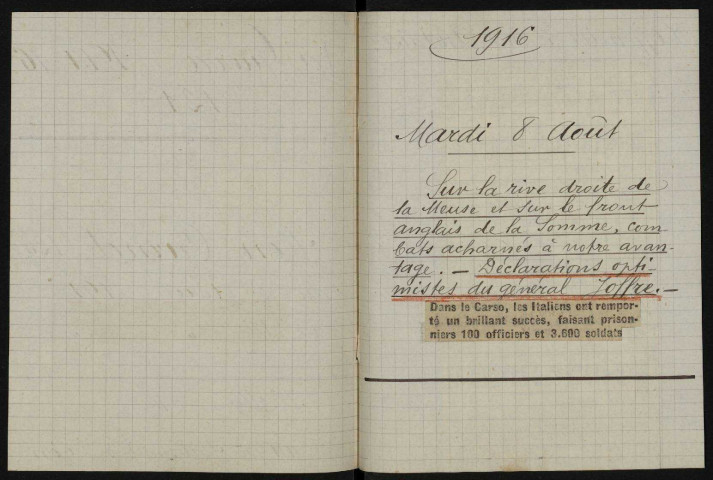 1916
Mardi 8 Août
Sur la rive droite de
la Meuse et sur le front
anglais de la Somme, com
bats acharnés à notre avan-
tage. — Déclarations opti-
mistes du général Joffre. —
Dans le Carso, les Italiens ont rempor-
té un brillant succès, faisant prison-
niers 100 officiers et 3.600 soldats